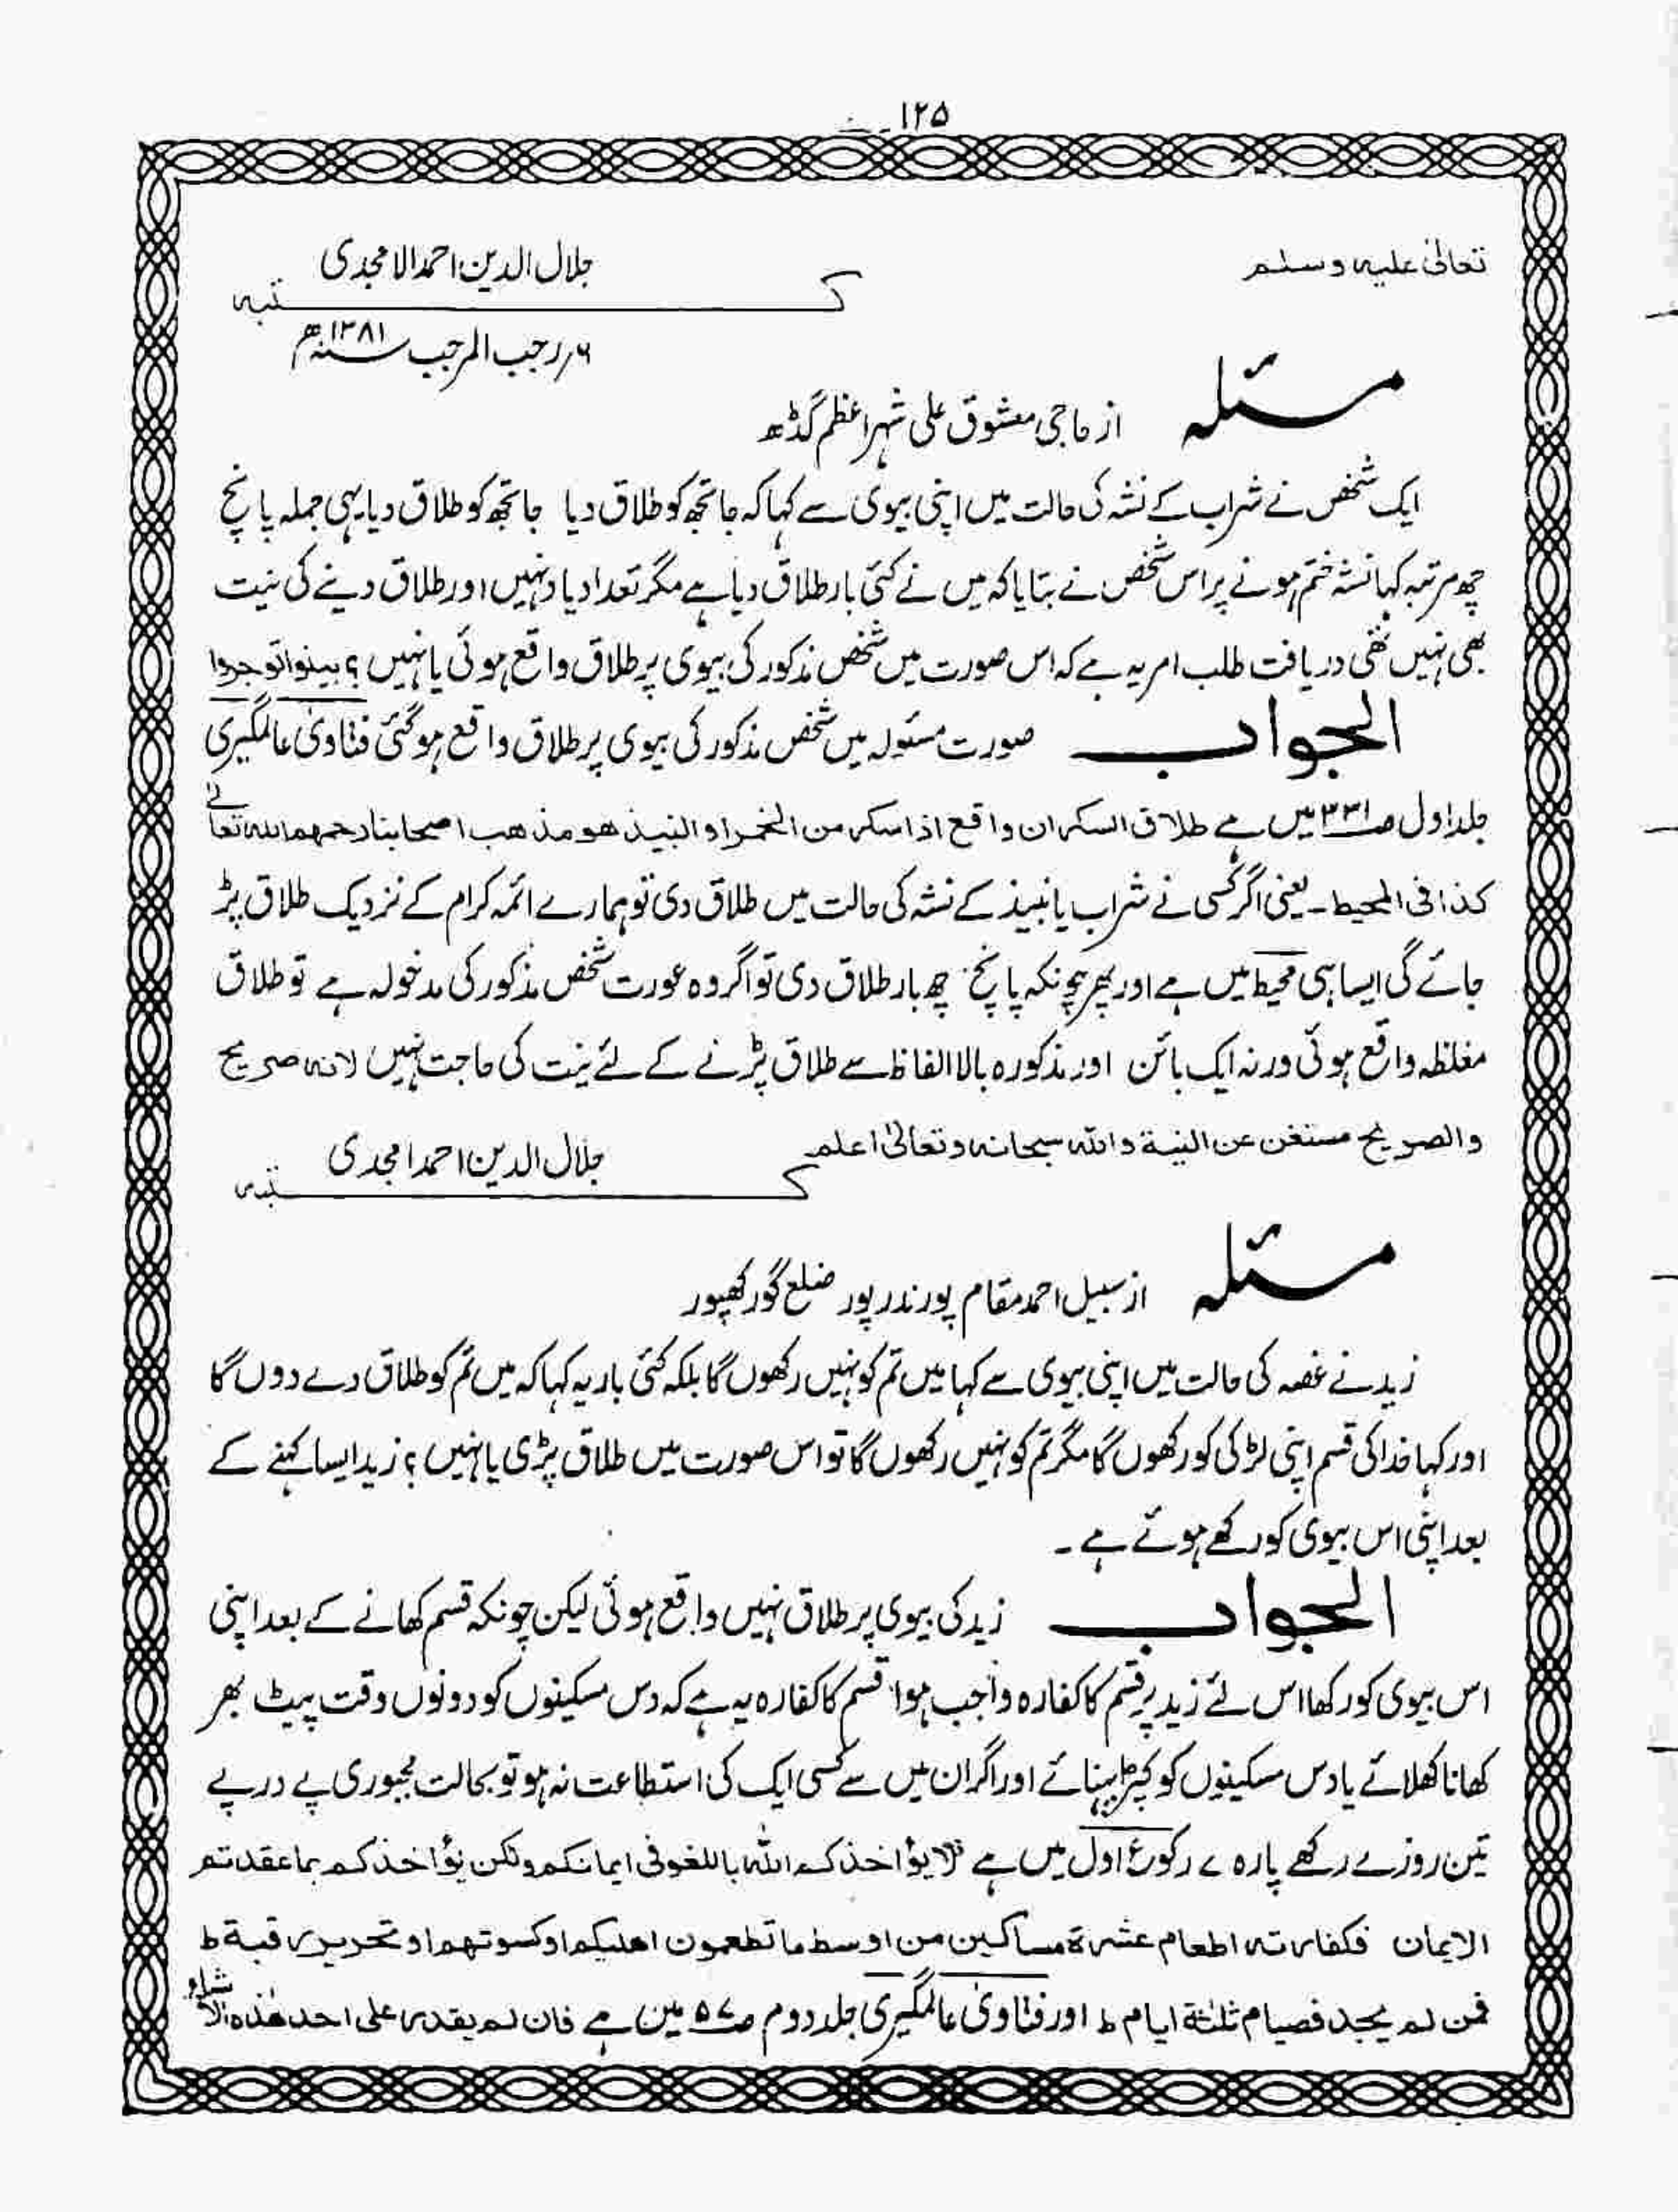 ۱۲۵
تعالیٰ علیہ وسلم
جلال الدین احمد الامجدی
کتبہ
۶؍ رجب المرجب سنہ ۱۳۸۱ھ
مسئلہ
از حاجی معشوق علی شہر اعظم گڈھ
ایک شخص نے شراب کے نشہ کی حالت میں اپنی بیوی سے کہا کہ جا تجھ کو طلاق دیا جا تجھ کو طلاق دیا یہی جملہ پانچ
چھ مرتبہ کہا نشہ ختم ہونے پر اس شخص نے بتایا کہ میں نے کئی بار طلاق دیا ہے مگر تعداد یاد نہیں اور طلاق دینے کی نیت
بھی نہیں تھی دریافت طلب امر یہ ہے کہ اس صورت میں شخص مذکور کی بیوی پر طلاق واقع ہوئی یا نہیں ؟ بینوا توجروا
الجواب صورت مسئولہ میں شخص مذکور کی بیوی پر طلاق واقع ہو گئی فتاویٰ عالمگیری
جلد اول ص ۳۳۱ میں ہے طلاق السکران واقع اذا سکر من الخمر او النبیذ ھو مذھب اصحابنا رحمھم اللہ تعالیٰ
کذا فی المحیط ۔ یعنی اگر کسی نے شراب یا نبیذ کے نشہ کی حالت میں طلاق دی تو ہمارے ائمہ کرام کے نزدیک طلاق پڑ
جائے گی ایسا ہی محیط میں ہے اور پھر چونکہ پانچ چھ بار طلاق دی تو اگر وہ عورت شخص مذکور کی مدخولہ ہے تو طلاق
مغلظہ واقع ہوئی ورنہ ایک بائن اور مذکورہ بالا الفاظ سے طلاق پڑنے کے لئے نیت کی حاجت نہیں لانہ صریح
والصریح مستغن عن النیۃ واللہ سبحانہ وتعالیٰ اعلم
جلال الدین احمد امجدی
کتبہ
مسئلہ
از سبیل احمد مقام پورندرپور ضلع گورکھپور
زید نے غصہ کی حالت میں اپنی بیوی سے کہا میں تم کو نہیں رکھوں گا بلکہ کئی بار یہ کہا کہ میں تم کو طلاق دے دوں گا
اور کہا خدا کی قسم اپنی لڑکی کو رکھوں گا مگر تم کو نہیں رکھوں گا تو اس صورت میں طلاق پڑی یا نہیں ؟ زید ایسا کہنے کے
بعد اپنی اس بیوی کو رکھے ہوئے ہے ۔
الجواب زید کی بیوی پر طلاق نہیں واقع ہوئی لیکن چونکہ قسم کھانے کے بعد اپنی
اس بیوی کو رکھا اس لئے زید پر قسم کا کفارہ واجب ہوا قسم کا کفارہ یہ ہے کہ دس مسکینوں کو دونوں وقت پیٹ بھر
کھانا کھلائے یا دس مسکینوں کو کپڑا پہنائے اور اگر ان میں سے کسی ایک کی استطاعت نہ ہو تو بحالت مجبوری پے درپے
تین روزے رکھے پارہ ۷ رکوع اول میں ہے لا یؤاخذکم اللہ باللغو فی ایمانکم ولکن یؤاخذکم بما عقدتم
الایمان فکفارتہ اطعام عشرۃ مساکین من اوسط ما تطعمون اھلیکم او کسوتھم او تحریر رقبۃ ط
فمن لم یجد فصیام ثلثۃ ایام ط اور فتاویٰ عالمگیری جلد دوم ص ۵۷ میں ہے فان لم یقدر علی احد ھذہ الاشیاء